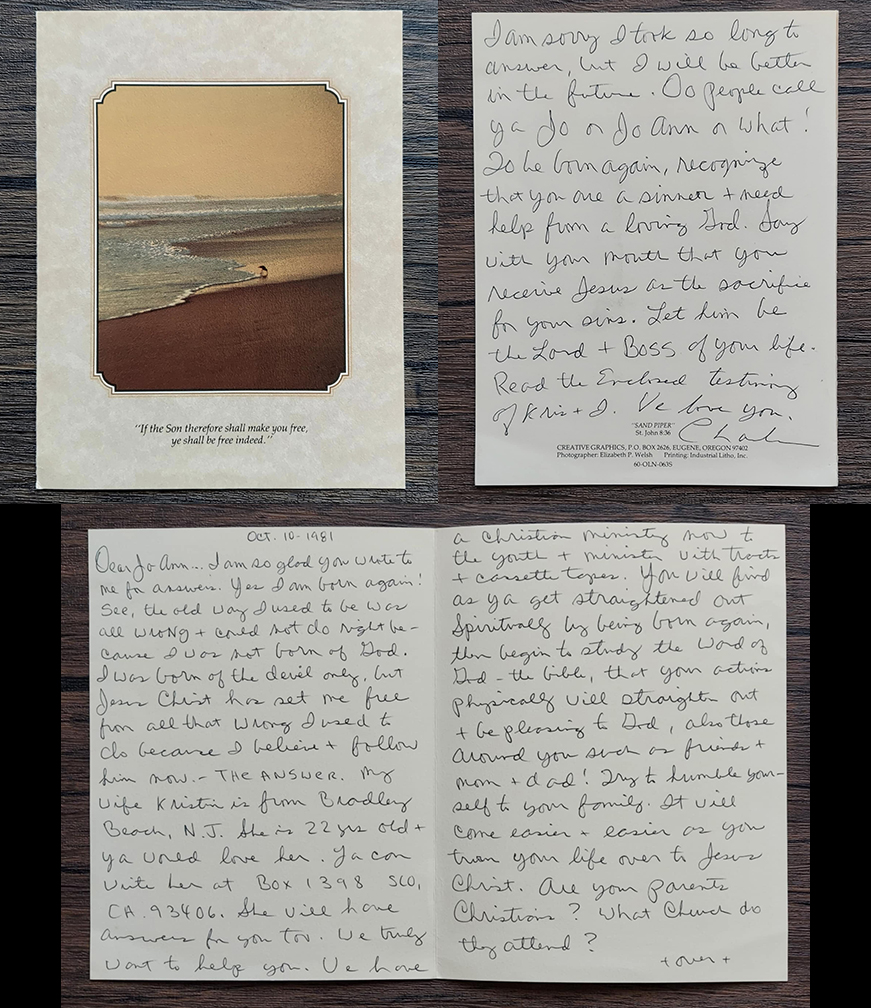 "If the Son therefore shall make you free,
ye shall be free indeed."
I am sorry I took so long to
answer, but I will be better
in the future. Do people call
ya Jo or Jo Ann or what!
To be born again, recognize
that you are a sinner + need
help from a loving God. Say
with your mouth that you
receive Jesus as the sacrifice
for your sins. Let him be
the Lord + BOSS of your life.
Read the Enclosed testimony
of Kris + I. We love you.
"SAND PIPER"
St. John 8:36
CREATIVE GRAPHICS, P.O. BOX 2626, EUGENE, OREGON 97402
Photographer: Elizabeth P. Welsh Printing: Industrial Litho, Inc.
60-OLN-063S
Oct. 10-1981
Dear Jo Ann... I am so glad you wrote to
me for answers. Yes I am born again!
See, the old way I used to be was
all wrong + could not do right be-
cause I was not born of God.
I was born of the devil only, but
Jesus Christ has set me free
from all that wrong I used to
do because I believe + follow
him now. - THE ANSWER. My
wife Kristin is from Bradley
Beach, N.J. She is 22 yrs old +
ya would love her. Ya can
write her at Box 1398 SLO,
CA. 93406. She will have
answers for you too. We truly
want to help you. We have
a Christian ministry now to
the youth + minister with tracts
+ cassette tapes. You will find
as ya get straightened out
Spiritually by being born again,
then begin to study the Word of
God - the bible, that your actions
physically will straighten out
+ be pleasing to God, also those
around you such as friends +
mom + dad! Try to humble your-
self to your family. It will
come easier + easier as you
turn your life over to Jesus
Christ. Are your parents
Christians? What Church do
they attend?
+ over +